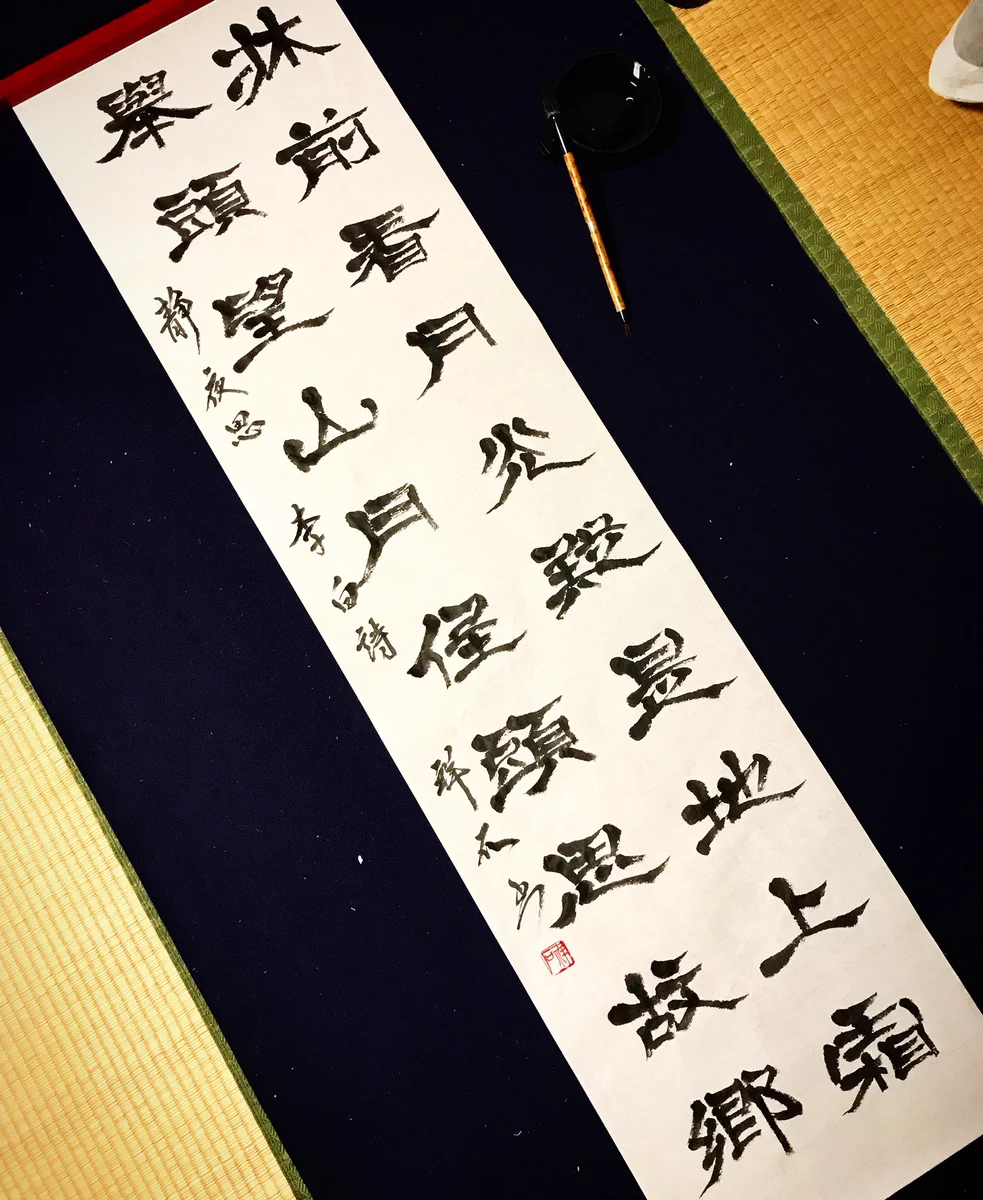 牀前看月光疑是地上霜
舉頭望山月低頭思故鄉
静夜思 李白詩 祥石書